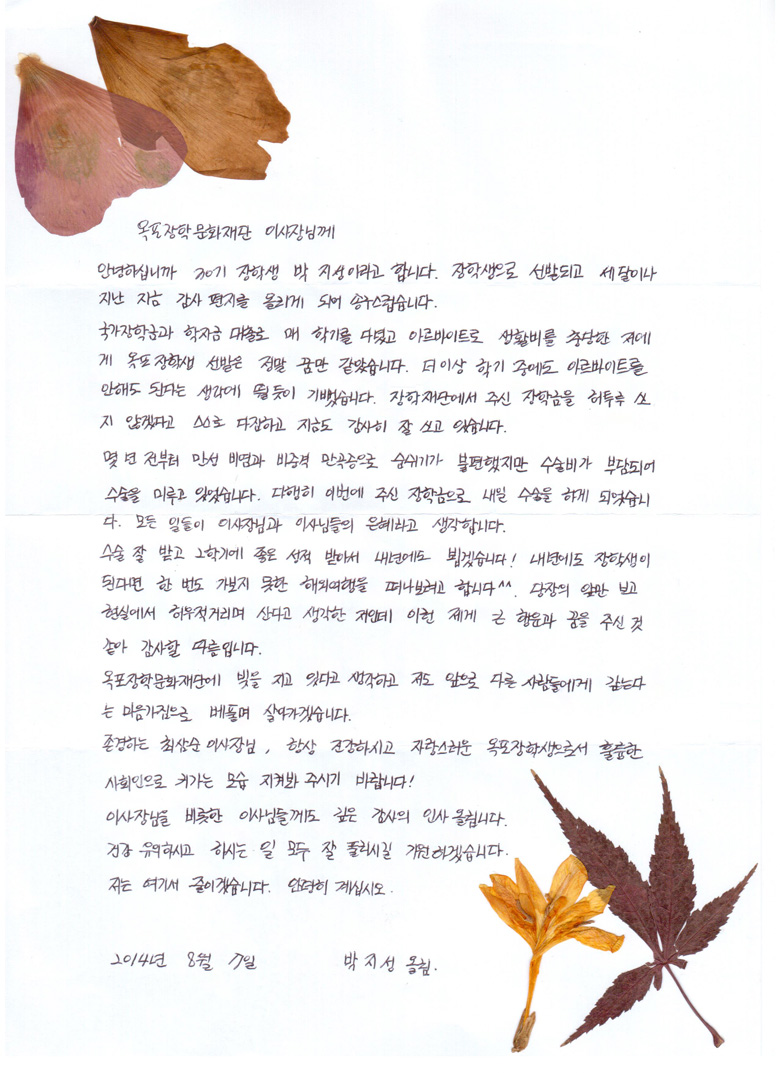 옥포장학문화재단 이사장님께
안녕하십니까 20기 장학생 박 지성이라고 합니다. 장학생으로 선발되고 세달이나
지난 지금 감사 편지를 올리게 되어 송구스럽습니다.
국가장학금과 학자금 대출로 매 학기를 다녔고 아르바이트로 생활비를 충당한 저에
게 옥포장학생 선발은 정말 꿈만 같았습니다. 더이상 학기 중에도 아르바이트를
안해도 된다는 생각에 뛸듯이 기뻤습니다. 장학재단에서 주신 장학금을 허투루 쓰
지 않겠다고 스스로 다짐하고 지금도 감사히 잘 쓰고 있습니다.
몇 년 전부터 만성 비염과 비중격 만곡증으로 숨쉬기가 불편했지만 수술비가 부담되어
수술을 미루고 있었습니다. 다행히 이번에 주신 장학금으로 내일 수술을 하게 되었습니
다. 모든 일들이 이사장님과 이사님들의 은혜라고 생각합니다.
수술 잘 받고 2학기에 좋은 성적 받아서 내년에도 뵙겠습니다! 내년에도 장학생이
된다면 한 번도 가보지 못한 해외여행을 떠나보려고 합니다^^. 당장의 앞만 보고
현실에서 허우적거리며 산다고 생각한 저인데 이런 제게 큰 행운과 꿈을 주신 것
같아 감사할 따름입니다.
옥포장학문화재단에 빚을 지고 있다고 생각하고 저도 앞으로 다른 사람들에게 갚는다
는 마음가짐으로 베풀며 살아가겠습니다.
존경하는 최상순 이사장님, 항상 건강하시고 자랑스러운 옥포장학생으로서 훌륭한
사회인으로 커가는 모습 지켜봐 주시기 바랍니다!
이사장님을 비롯한 이사님들께도 깊은 감사의 인사 올립니다.
건강 유의하시고 하시는 일 모두 잘 풀리시길 기원하겠습니다.
저는 여기서 줄이겠습니다. 안녕히 계십시오.
2014년 8월 17일 박지성 올림.